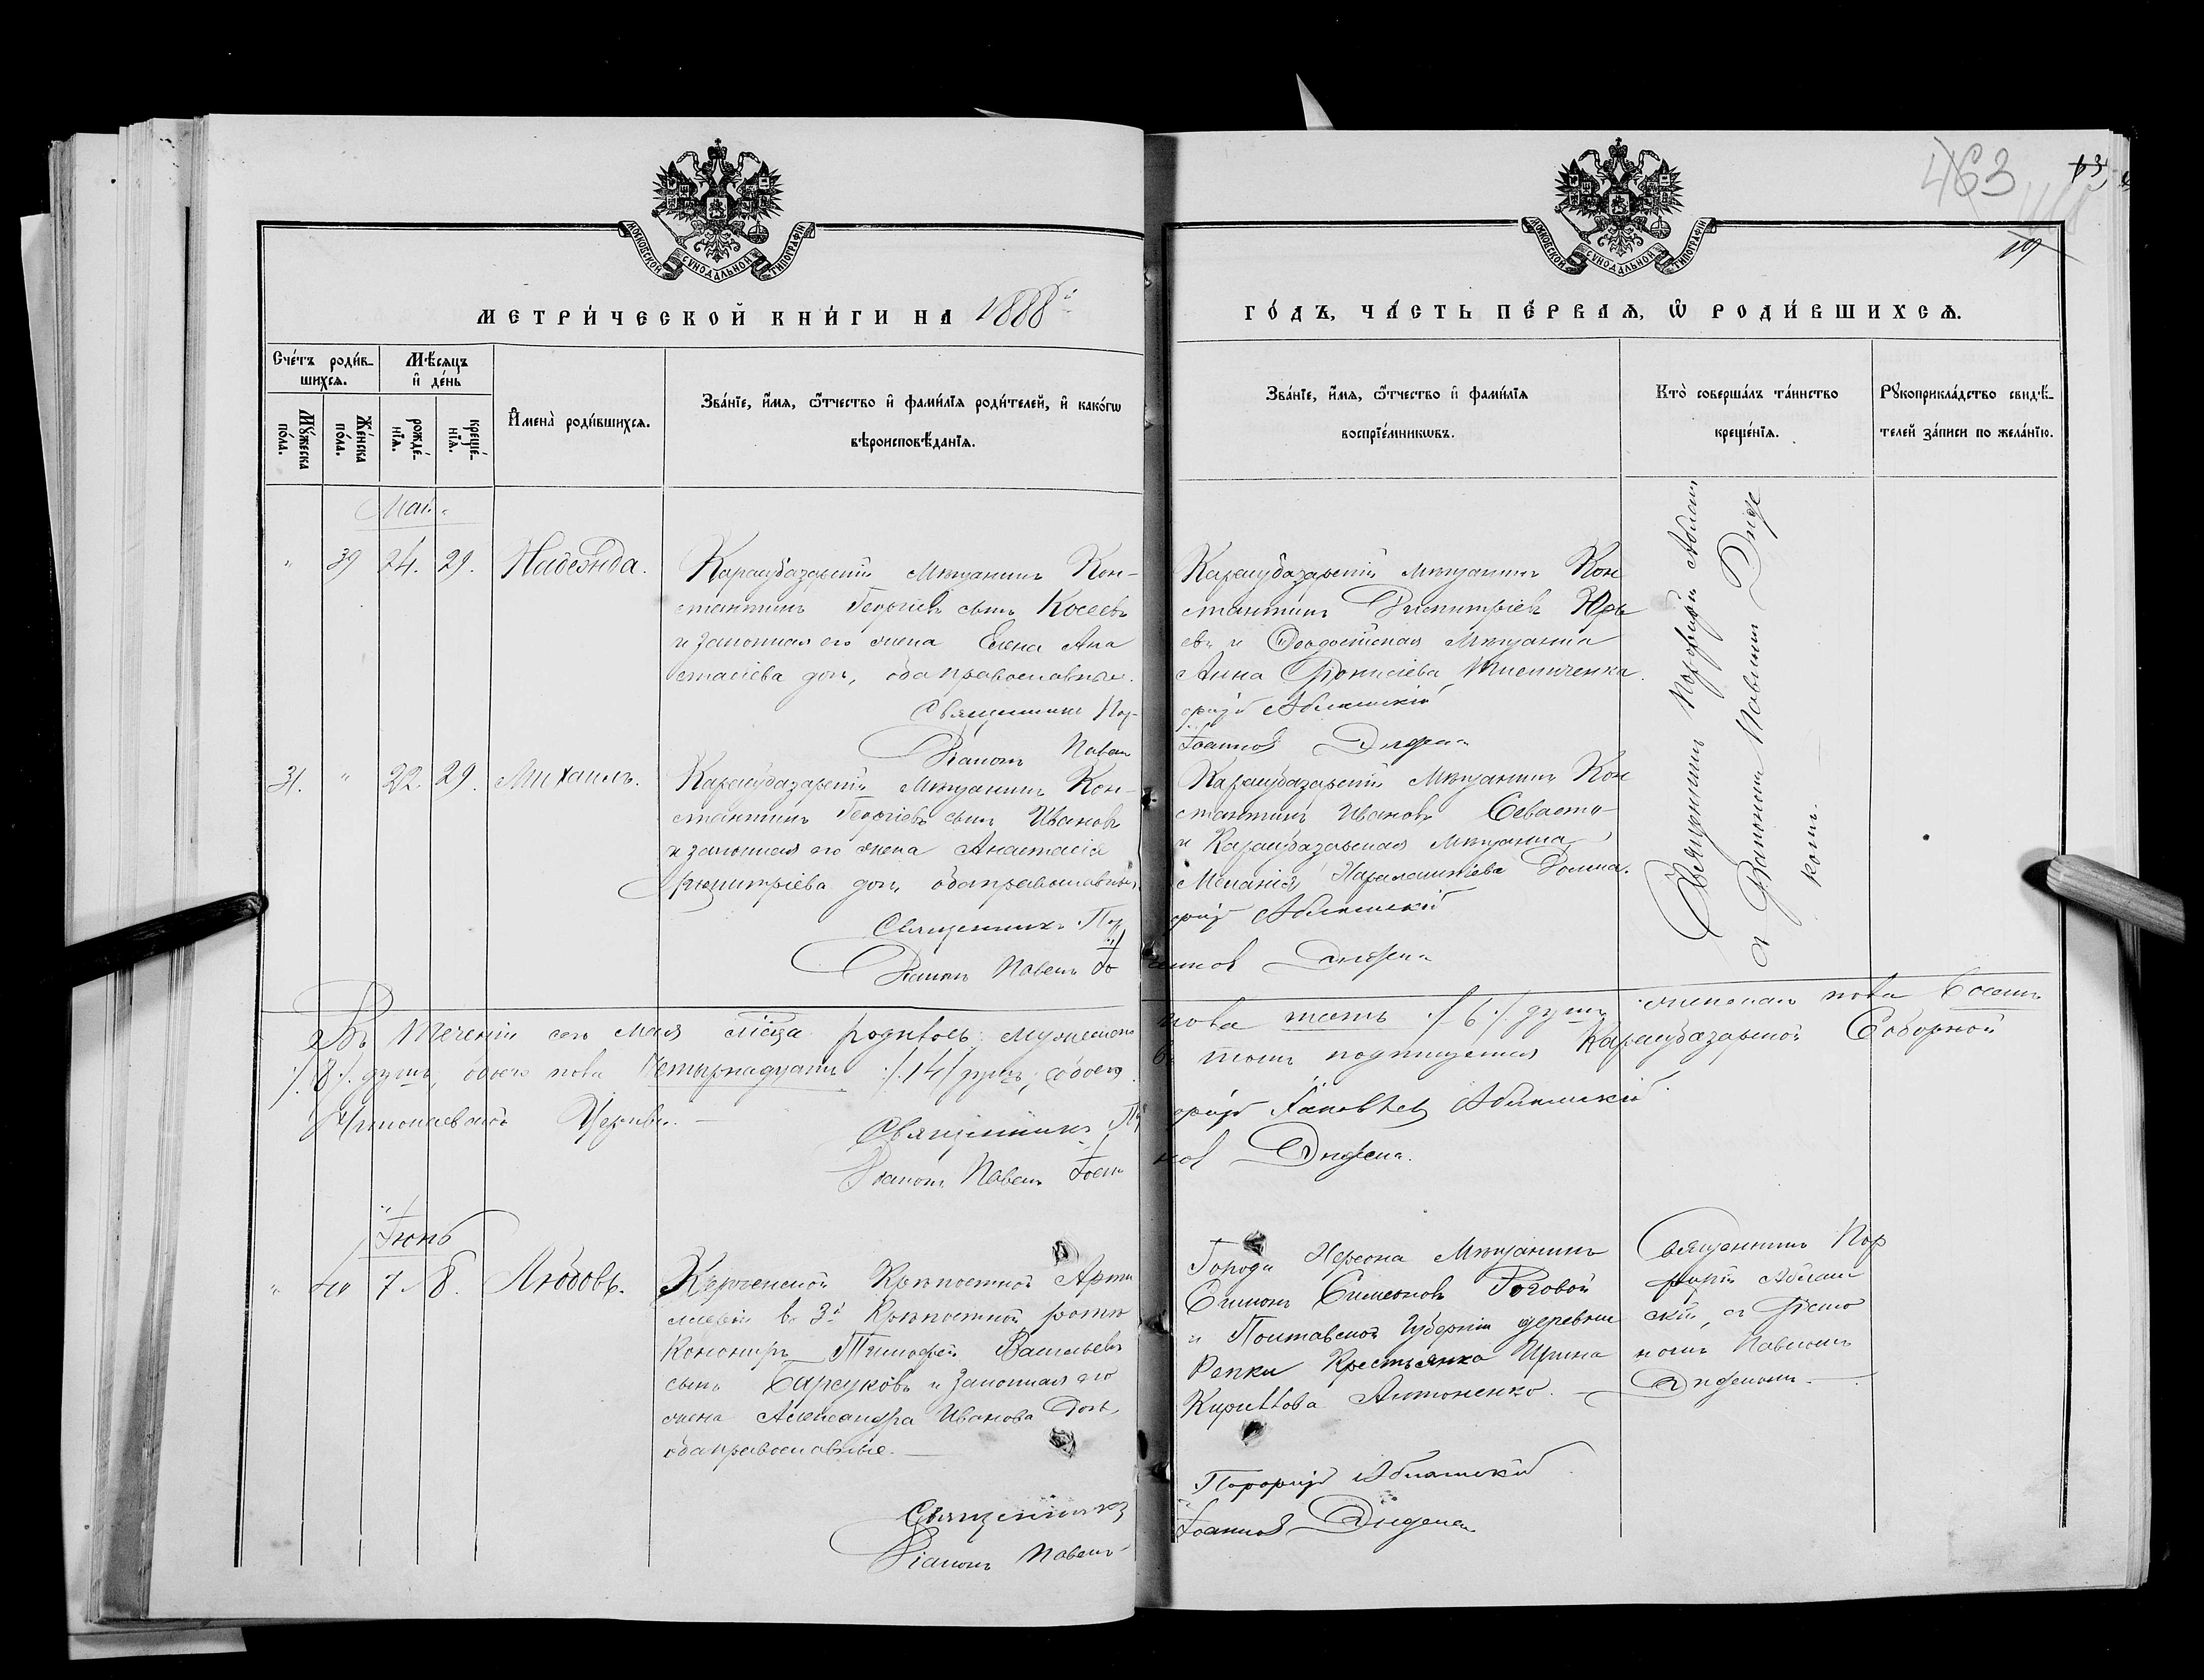 463
19
МОСКОВСКОЙ СУНОДАЛЬНОЙ ТИПОГРАФІИ
МОСКОВСКОЙ СУНОДАЛЬНОЙ ТИПОГРАФІИ
МЕТРИ́ЧЕСКОЙ КНИ́ГИ НА 1888й
ГО́ДЪ, ЧА́СТЬ ПЕ́РВАѦ, Ѡ РОДИ́ВШИХСѦ.
Сче́тъ роди́в-
шихсѧ.
Мѣ́сѧцъ
и де́нь
Мꙋ́жеска
по́ла.
Же́нска
по́ла.
рожде́-
нїѧ.
креще́-
нїѧ.
Имена̀ роди́вшихсѧ.
Зва́нїе, и́мѧ, ѻ҆́тчество и фами́лїѧ роди́телей, и како́гѡ
вѣроисповѣ́данїѧ.
Зва́нїе, и́мѧ, ѻ҆́тчество и фами́лїѧ
воспрїе́мникѡвъ.
Кто̀ соверша́лъ та́инство
креще́нїѧ.
Рꙋкоприкла́дство свидѣ́-
телей за́писи по жела́нїю.
Май.
" 39 24. 29. Надежда.
Карасубазарскій Мѣщанинъ Кон-
стантинъ Георгіевъ сынъ Косевъ
и законная его жена Елена Ана
стасіева доч., оба православные.
Священникъ Пор-
Діаконъ Павелъ
Карасубазарскій Мѣщанинъ Кон
стантинъ Димитріевъ Юрь
евъ и Ѳеодосійская Мѣщанка
Анна
фирій Аблямскій
Іоанновъ
Священникъ Порфирій Аблям
с Діакономъ Павломъ
комъ.
31. " 22. 29. Михаилъ.
Карасубазарскій Мѣщанинъ Кон-
стантинъ Георгіевъ сынъ Ивановъ
и законная его жена Анастасія
Димитріева доч. оба православные.
Священникъ Пор
Діаконъ Павелъ Іо
Карасубазарскій Мѣщанинъ Кон
стантинъ Ивановъ Севасто-
и Карасубазарская Мѣщанка
Меланія Харалампіева
фирій Аблямскій
анновъ
Въ теченіи сего Мая мѣсяца родилось: мужескаго пола шесть /.6./ душъ, женскаго пола восемь
/.8./ душъ, обоего пола четырнадцать /.14/ душъ; въ томъ подпишемся Карасубазарской Соборной
Николаевской Церкви.
Священникъ Порфирій Яковлевъ Аблямскій
Діаконъ Павелъ Іоанновъ
Іюнь
" 40 7 8. Любовь.
Керченской Крѣпостной Арти
леріи во 3й Крѣпостной ротѣ
Канониръ Тимофей Васильевъ
сынъ Барсуковъ и законная его
жена Александра Иванова доч.
оба православные.
Священникъ
Діаконъ Павелъ
Города Херсона Мѣщанинъ
Симонъ Симеоновъ Роговой
и Полтавской Губерніи деревни
Репки Крестьянка Ирина
Кириллова Антоненко.
Порфирій Аблямскій
Іоанновъ
Священникъ Пор
фирій Аблям
скій, с Діако
номъ Павломъ